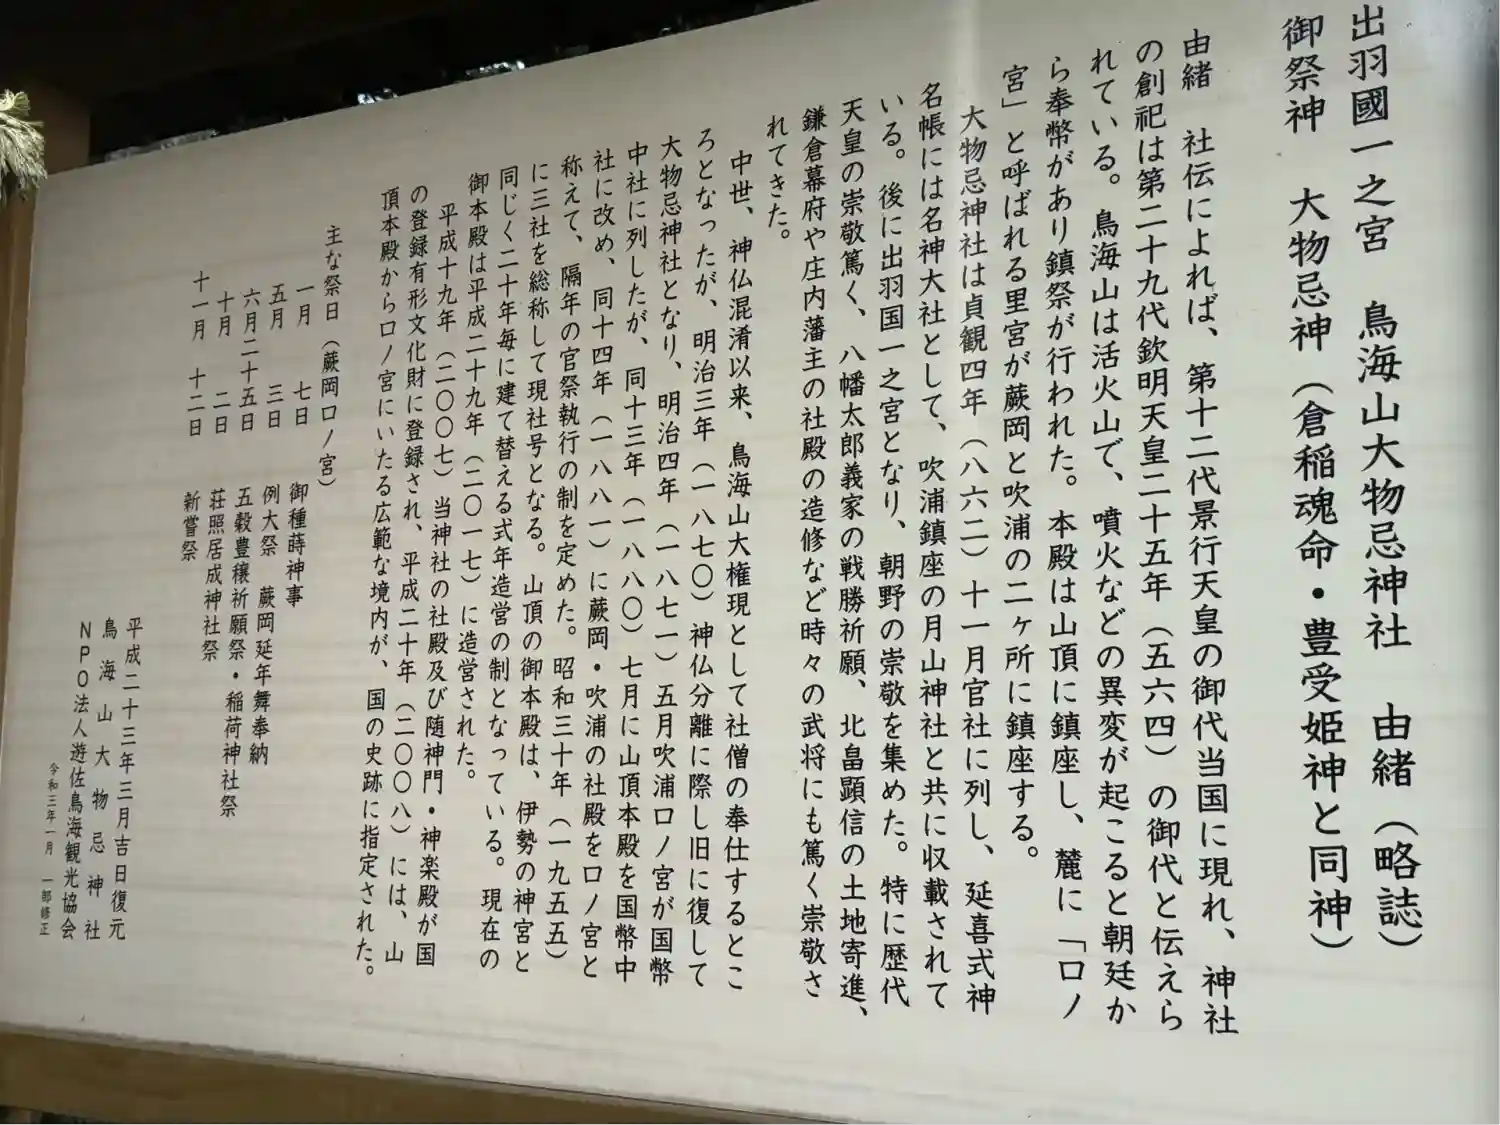 出羽國一之宮　鳥海山大物忌神社　由緒（略誌）
御祭神　大物忌神（倉稲魂命・豊受姫神と同神）
由緒　社伝によれば、第十二代景行天皇の御代当国に現れ、神社
の創祀は第二十九代欽明天皇二十五年（五六四）の御代と伝えら
れている。鳥海山は活火山で、噴火などの異変が起こると朝廷か
ら奉幣があり鎮祭が行われた。本殿は山頂に鎮座し、麓に「口ノ
宮」と呼ばれる里宮が蕨岡と吹浦の二ヶ所に鎮座する。
大物忌神社は貞観四年（八六二）十一月官社に列し、延喜式神
名帳には名神大社として、吹浦鎮座の月山神社と共に収載されて
いる。後に出羽国一之宮となり、朝野の崇敬を集めた。特に歴代
天皇の崇敬篤く、八幡太郎義家の戦勝祈願、北畠顕信の土地寄進、
鎌倉幕府や庄内藩主の社殿の造修など時々の武将にも篤く崇敬さ
れてきた。
中世、神仏混淆以来、鳥海山大権現として社僧の奉仕するとこ
ろとなったが、明治三年（一八七〇）神仏分離に際し旧に復して
大物忌神社となり、明治四年（一八七一）五月吹浦口ノ宮が国幣
中社に列したが、同十三年（一八八〇）七月に山頂本殿を国幣中
社に改め、同十四年（一八八一）に蕨岡・吹浦の社殿を口ノ宮と
称えて、隔年の官祭執行の制を定めた。昭和三十年（一九五五）
に三社を総称して現社号となる。山頂の御本殿は、伊勢の神宮と
同じく二十年毎に建て替える式年造営の制となっている。現在の
御本殿は平成二十九年（二〇一七）に造営された。
平成十九年（二〇〇七）当神社の社殿及び随神門・神楽殿が国
の登録有形文化財に登録され、平成二十年（二〇〇八）には、山
頂本殿から口ノ宮にいたる広範な境内が、国の史跡に指定された。
主な祭日（蕨岡口ノ宮）
一月　七日　御種蒔神事
五月　三日　例大祭　蕨岡延年舞奉納
六月二十五日　五穀豊穣祈願祭・稲荷神社祭
十月　二日　荘照居成神社祭
十一月　十二日　新嘗祭
平成二十三年三月吉日復元
鳥海山大物忌神社
NPO法人遊佐鳥海観光協会
令和三年一月　一部修正